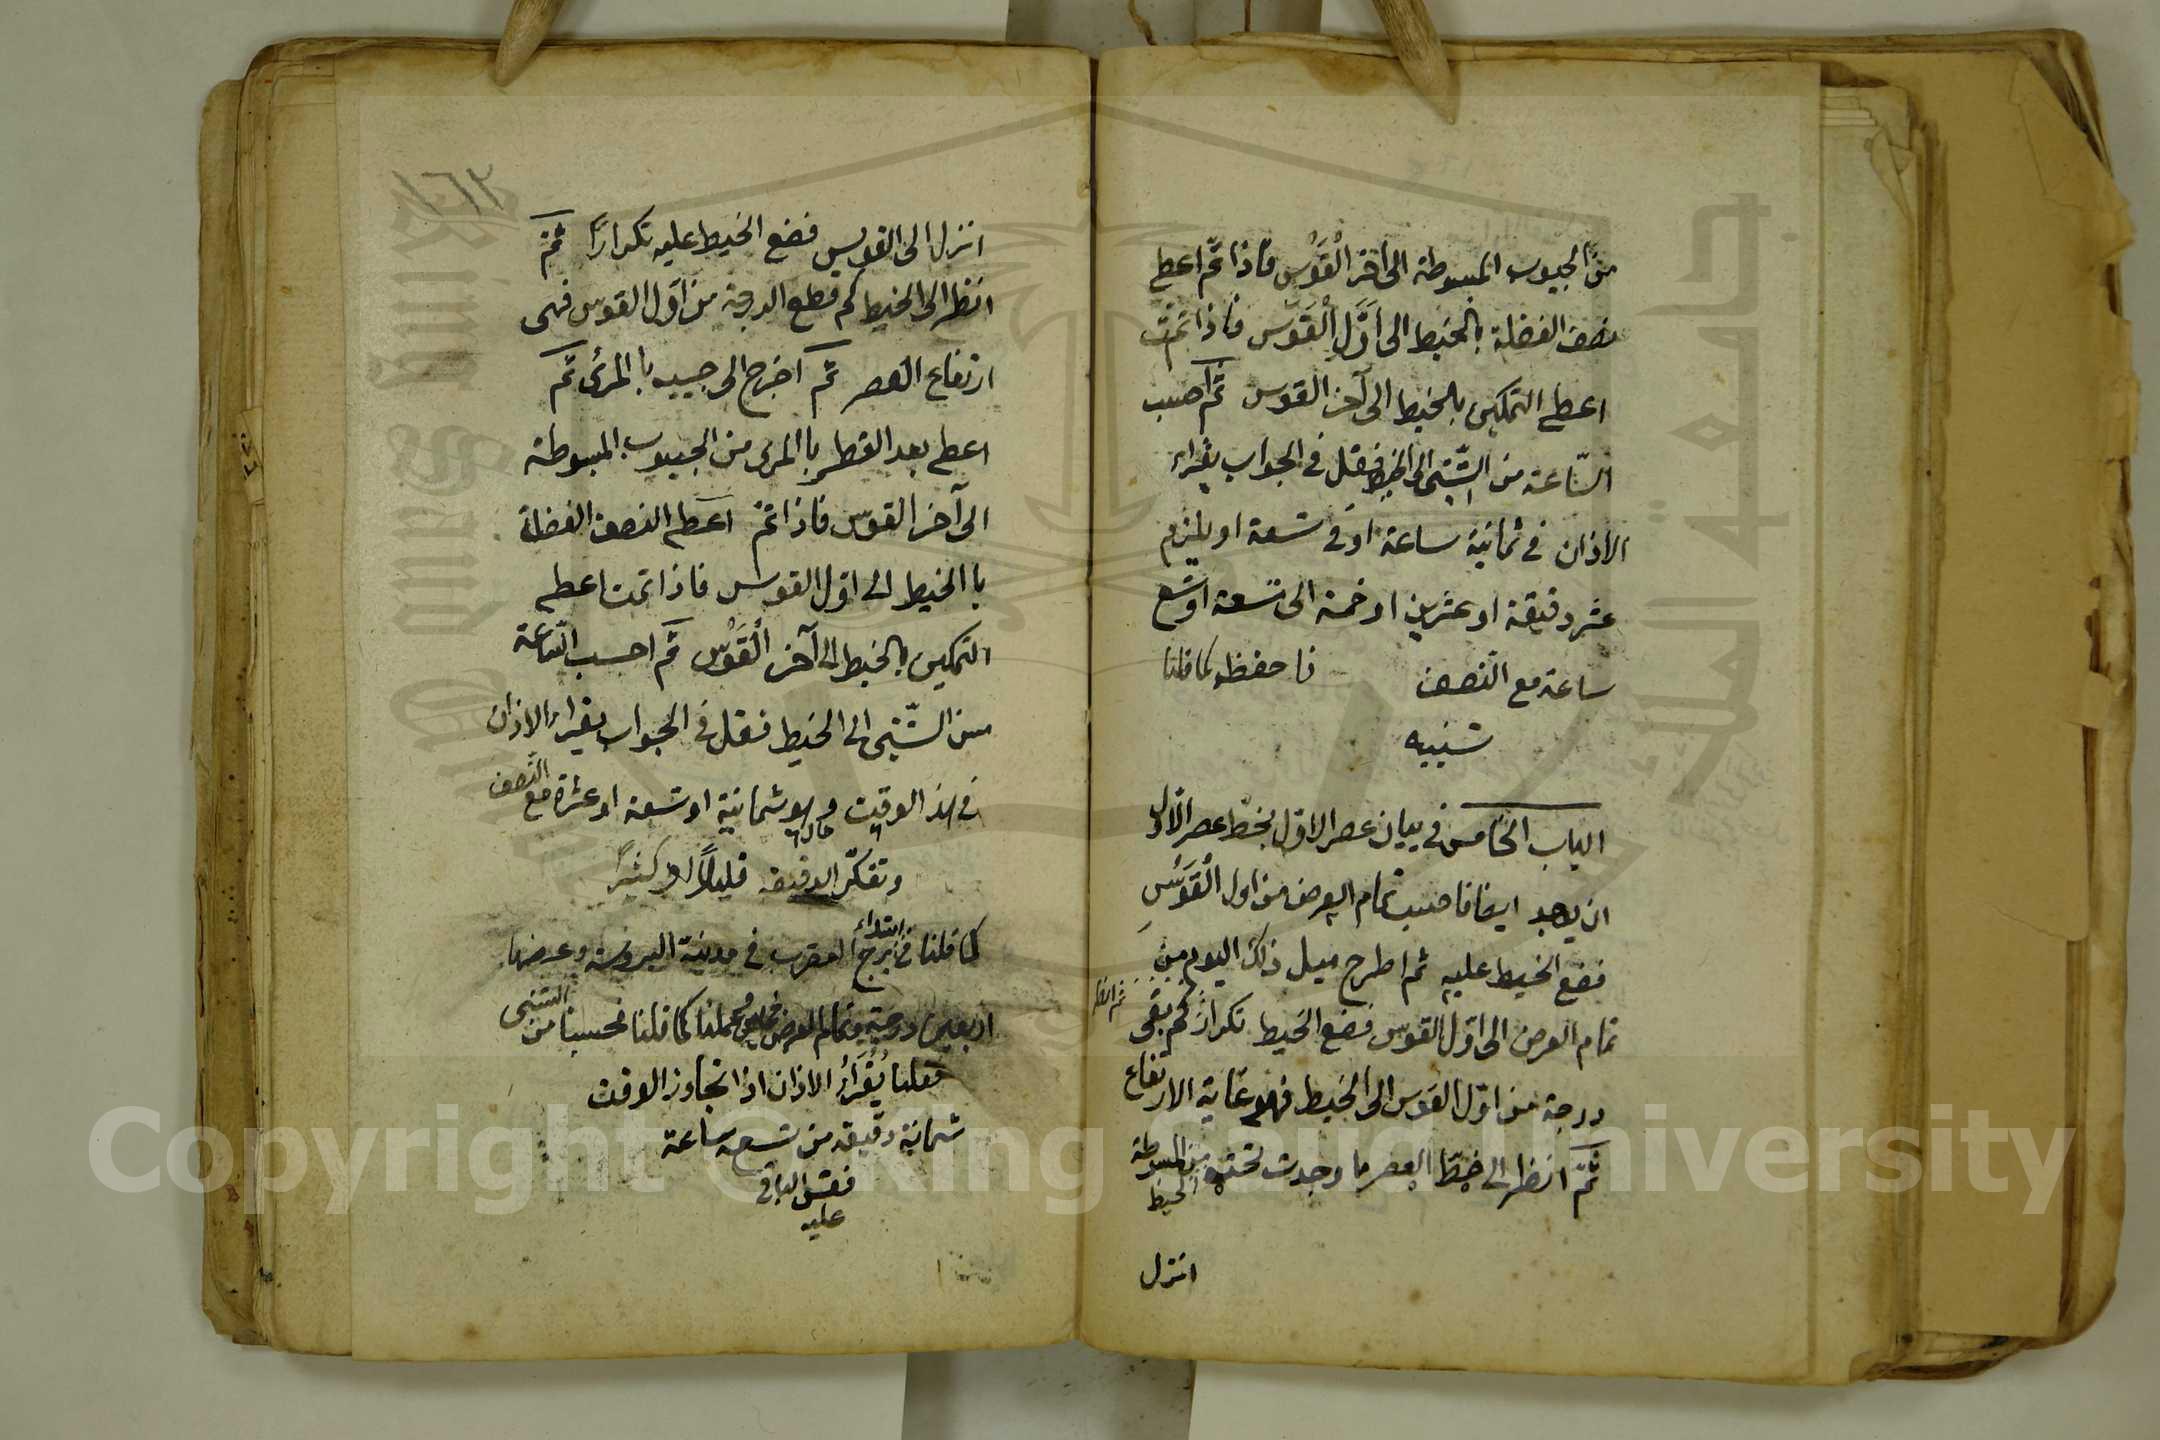 من الجيوب المبسوطة الى آخر الْقَوْس فاذا تمّ اعطِ
نصف الفضلة بالخيط الى اوَّل الْقَوس فاذا تمّت
اعطِ التمكين بالخيط الى آخر القوس ثمّ احسب
السّاعة من السّتينى الى الخيط فقل فى الجواب يقراء
الاذان فى ثمانية ساعة او فى تسعة او يلزم
عشر دقيقة او عشرين او خمسة الى تسعة او تسع
ساعة مع النّصف فاحفظ كما قلنا
تنبيه
الباب الخامس فى بيان عصر الاوّل بخطّ عصر الاوّل
ان يوجد ايضا فاحسب تمام العرض من اول الْقَوْسِ
فضع الخيط عليه ثم اطرح ميل ذلك اليوم من
تمام العرض الى اوّل القوس فضع الخيط تكراراً كم بقى
ثم انظر
درجة من اوّل القوس الى الخيط فهو غاية الارتفاع
ثمّ انظر الى خطّ العصر ما وجدت تحته من المبسوطة
الخيط
انزل
١٦٢
انزل الى القوس فضع الخيط عليه تكراراً ثمّ
انظر الى الخيط كم قطع الدرجة من اوّل القوس فهى
ارتفاع العصر ثمّ اخرج الى جيبه باالمرئ ثمّ
اعطِ بعد القطر باالمرى من الجيوب المبسوطة
الى آخر القوس فاذا تمّ اعطِ النصف الفضلة
باالخيط الى اوّل القوس فاذا تمت اعطِ
التمكين بالخيط الى آخر الْقَوْس ثمّ احسب السّاعة
من السّتينى الى الخيط فقل فى الجواب يقراء الاذان
فى هذ الوقت وهو ثمانية او تسعة او عشرة مع النّصف
وتفكّر الدقيقه قليلاً او كثيراً
كما قلنا فى ابتداء برج العقرب فى مدينة البروسة وعرضها
اربعين درجة وتمام العرض خمسين وعملنا كما قلنا فحسبنا من السّتينى
فقلنا يُقْرَأُ الاذان اذا تجاوز الوقت
ثمانية دقيقة من تسع ساعة
فقس الباقى
عليه
Copyright © King Saud University
جامعة الملك
King Saud